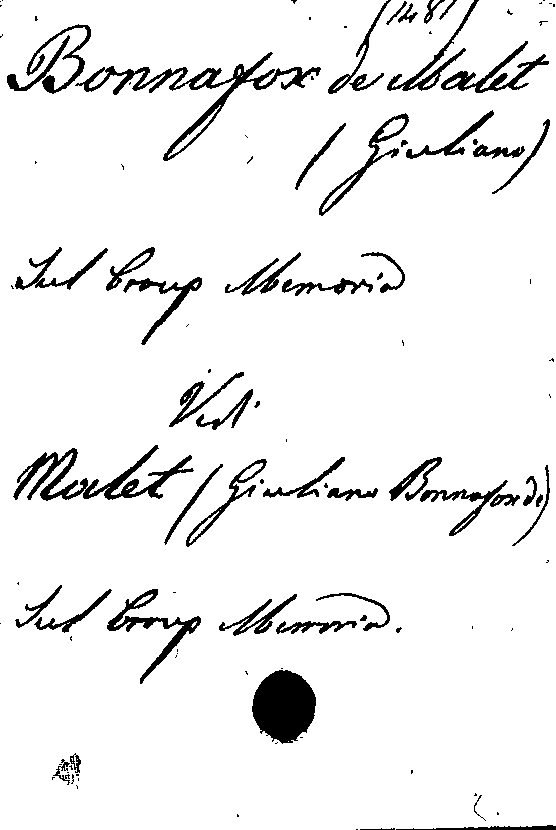 (1481)
Bonnafox de Malet
(Giuliano)
Sul Croup Memoria
Vedi
Malet (Giuliano Bonnafox de)
Sul Croup Memoria.